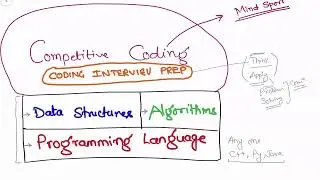 Mind Sport
Competitive Coding
CODING INTERVIEW PREP
Think
Apply
Problem
Solving
Data Structures
Algorithms
Programming Language
Any one
C++, Py, Java